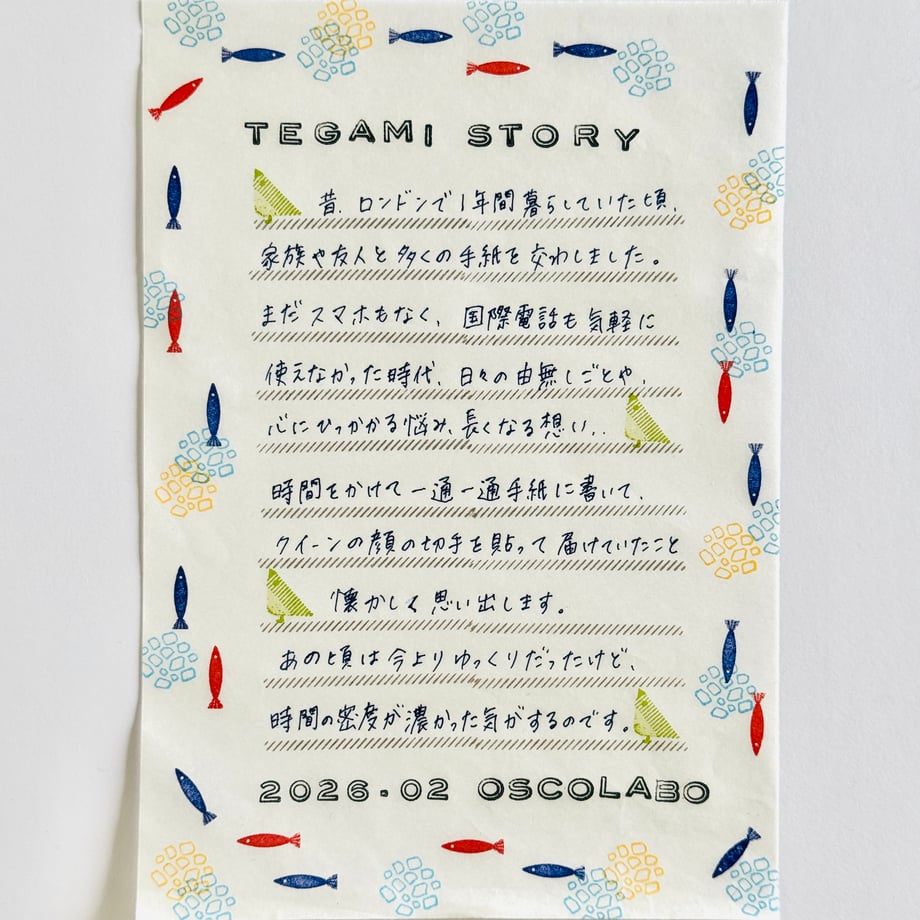 TEGAMI STORY
昔、ロンドンで1年間暮らしていた頃、
家族や友人と多くの手紙を交わしました。
まだスマホもなく、国際電話も気軽に
使えなかった時代、日々の由無しごとや、
心にひっかかる悩み、長くなる想い、、
時間をかけて一通一通手紙に書いて、
クイーンの顔の切手を貼って届けていたこと
懐かしく思い出します。
あの頃は今よりゆっくりだったけど、
時間の密度が濃かった気がするのです。
2026・02 OSCOLABO